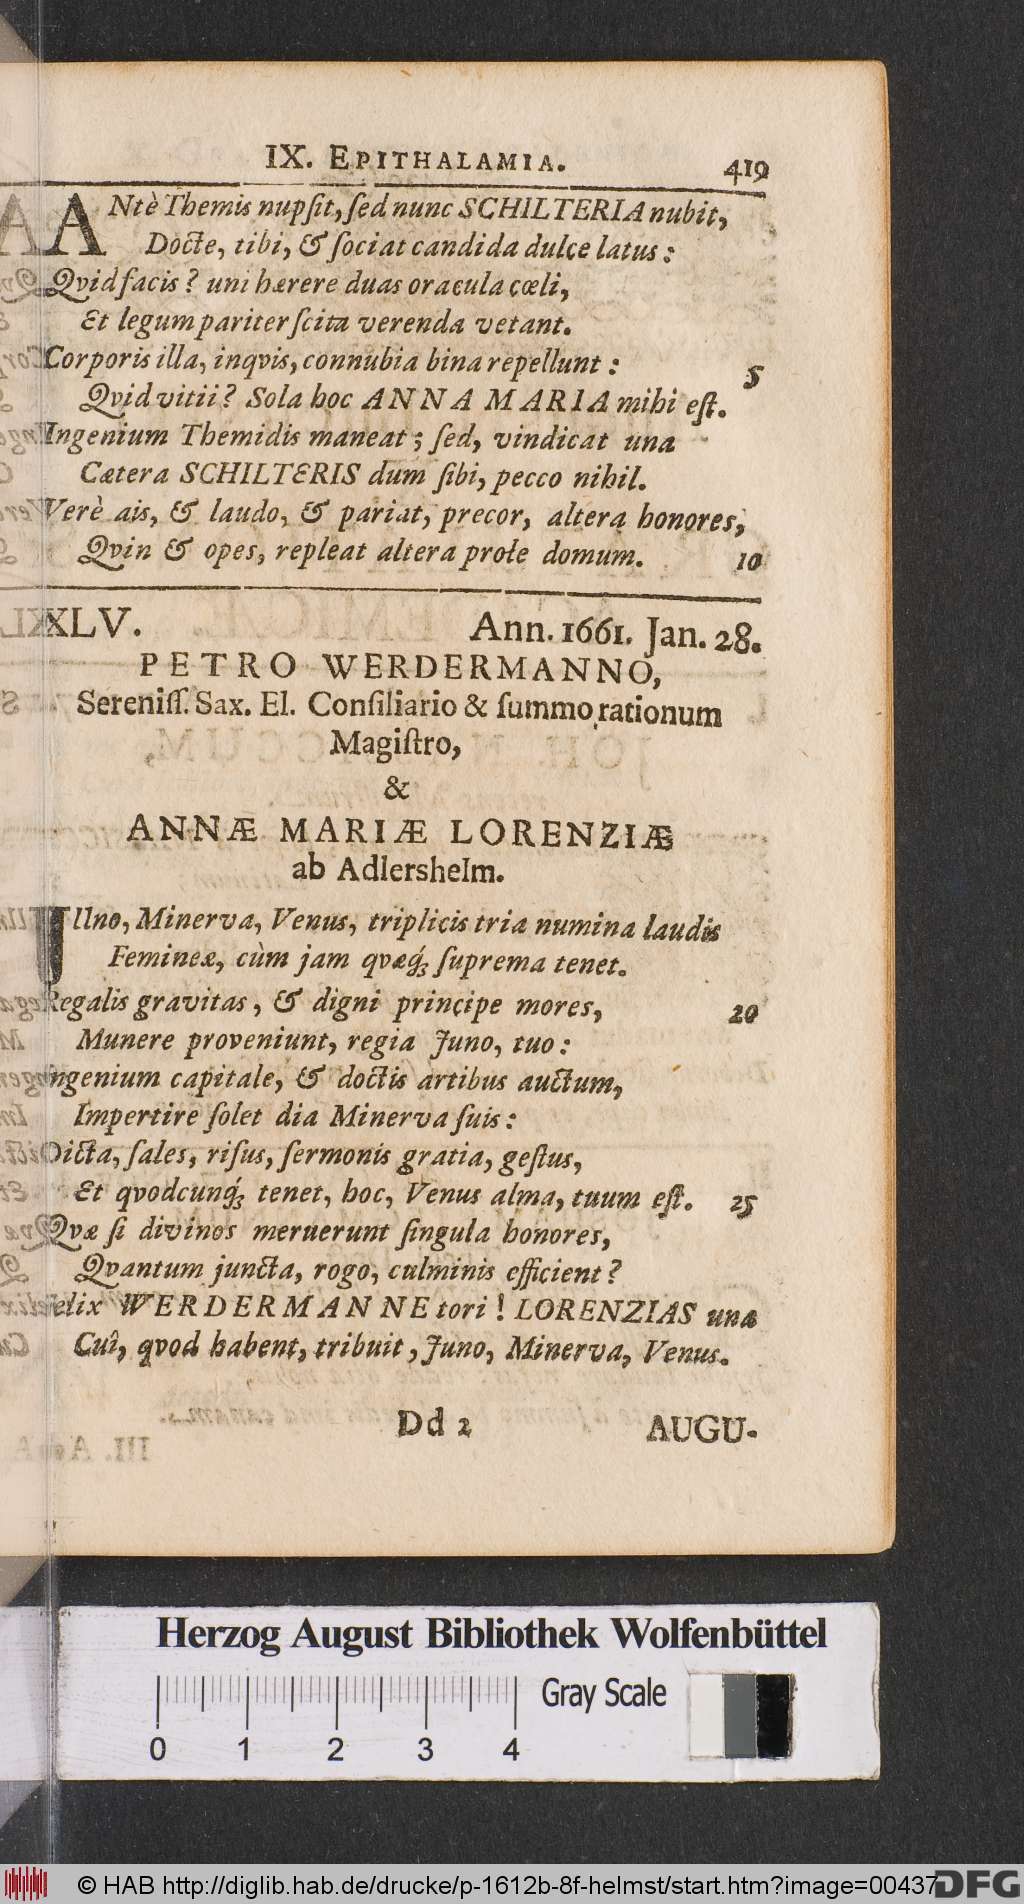 IX. EPITHALAMIA. 419
ANtè Themis nupſit, ſed nunc SCHILTERIA nubit,
Docte, tibi, & ſociat candida dulce latus:
Qvid facis? uni hærere duas oracula cœli,
Et legum pariter ſcita verenda vetant.
Corporis illa, inqvis, connubia bina repellunt: 5
Qvid vitii? Sola hoc ANNA MARIA mihi eſt.
Ingenium Themidis maneat; ſed, vindicat una
Cætera SCHILTERIS dum ſibi, pecco nihil.
Verè ais, & laudo, & pariat, precor, altera honores,
Qvin & opes, repleat altera prole domum. 10
XLV. Ann. 1661. Jan. 28.
PETRO WERDERMANNO,
Sereniſſ. Sax. El. Conſiliario & ſummo rationum
Magiſtro,
&
ANNÆ MARIÆ LORENZIÆ
ab Adlershelm.
JUno, Minerva, Venus, triplicis tria numina laudis
Femineæ, cùm jam qvæq́; ſuprema tenet.
Regalis gravitas, & digni principe mores, 20
Munere proveniunt, regia Juno, tuo:
Ingenium capitale, & doctis artibus auctum,
Impertire ſolet dia Minerva ſuis:
Dicta, ſales, riſus, ſermonis gratia, geſtus,
Et qvodcunq́; tenet, hoc, Venus alma, tuum eſt. 25
Qvæ ſi divinos meruerunt ſingula honores,
Qvantum juncta, rogo, culminis efficient?
Felix WERDERMANNE tori! LORENZIAS una
Cuî, qvod habent, tribuit, Juno, Minerva, Venus.
Dd 2 AUGU-
Herzog August Bibliothek Wolfenbüttel
Gray Scale
0 1 2 3 4
© HAB http://diglib.hab.de/drucke/p-1612b-8f-helmst/start.htm?image=00437
DFG